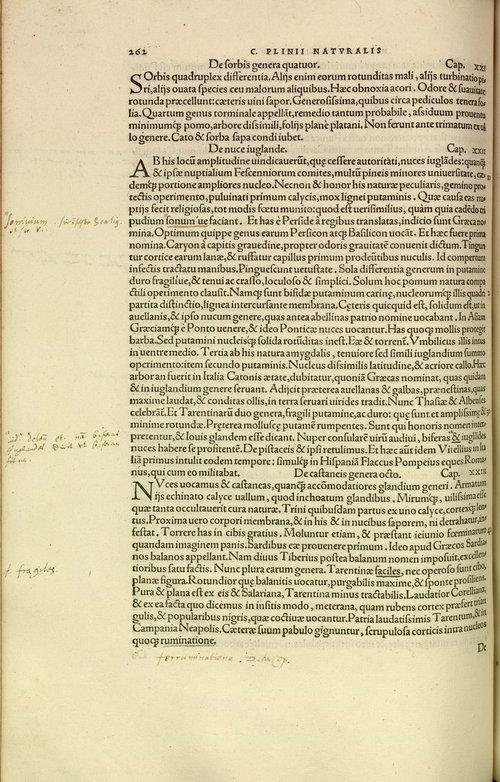 262 C. PLINII NATVRALIS
De sorbis genera quatuor. Cap. XXI
SOrbis quadruplex differentia. Alijs enim eorum rotunditas mali, alijs turbinatio pi
ri, alijs ouata species ceu malorum aliquibus. Hæc obnoxia acori. Odore & suauitate
rotunda præcellunt: cæteris uini sapor. Generosissima, quibus circa pediculos tenera fo
lia. Quartum genus torminale appellāt, remedio tantum probabile, assiduum prouentu
minimumq́ pomo, arbore dissimili, folijs planè platani. Non ferunt ante trimatum ex ul
lo genere. Cato & sorba sapa condi iubet.
De nuce iuglande. Cap. XXII
AB his locū amplitudine uindicauerūt, quę cessere autoritati, nuces iuglādes: quanq̄
& ipsæ nuptialium Fescenniorum comites, multū pineis minores uniuersitate, eæ
demq́ portione ampliores nucleo. Necnon & honor his naturæ peculiaris, gemino pro
tectis operimento, puluinati primum calycis, mox lignei putaminis. Quæ causa eas nu
ptijs fecit religiosas, tot modis fœtu munito: quod est uerisimilius, quàm quia cadēdo tri
pudium sonum ue faciant. Et has è Perside à regibus translatas, indicio sunt Græca no
mina. Optimum quippe genus earum Persicon atq́ Basilicon uocāt. Et hæc fuere prima
nomina. Caryon à capitis grauedine, propter odoris grauitatē conuenit dictum. Tingun
tur cortice earum lanæ, & ruffatur capillus primum prodeūtibus nuculis. Id compertum
infectis tractatu manibus. Pinguescunt uetustate. Sola differentia generum in putamine
duro fragiliue, & tenui ac crasso, loculoso & simplici. Solum hoc pomum natura compa
ctili operimento clausit. Namq́ sunt bifidæ putaminum carinæ, nucleorumq́ illis quadri
partita distinctio, lignea intercursante membrana. Cęteris quicquid est, solidum est, ut in
auellanis, & ipso nucum genere, quas antea abellinas patrio nomine uocabant. In Asiam
Græciamq́ è Ponto uenere, & ideo Ponticæ nuces uocantur. Has quoq́ mollis protegit
barba. Sed putamini nucleisq́ solida rotūditas inest. Eæ & torrent. Vmbilicus illis intus
in uentre medio. Tertia ab his natura amygdalis, tenuiore sed simili iuglandium summo
operimento: item secundo putaminis. Nucleus dissimilis latitudine, & acriore callo. Hæc
arbor an fuerit in Italia Catonis ætate, dubitatur, quoniā Græcas nominat, quas quidam
& in iuglandium genere seruant. Adijcit præterea auellanas & galbas, prænestinas, quas
maxime laudat, & conditas ollis, in terra seruari uirides tradit. Nunc Thasiæ & Albenses
celebrāt. Et Tarentinarū duo genera, fragili putamine, ac duro: quę sunt et amplissimæ, &
minime rotundæ. Pręterea molluscę putamē rumpentes. Sunt qui honoris nomen inter
pretentur, & Iouis glandem esse dicant. Nuper consularē uirū audiui, biferas & iuglandes
nuces habere se profitentē. De pistaceis & ipsi retulimus. Et hæc aūt idem Vitellius in Ita
liā primus intulit eodem tempore: simulq́ in Hispaniā Flaccus Pompeius eques Roma
nus, qui cum eo militabat. De castaneis genera octo. Cap. XXIII
NVces uocamus & castaneas, quanq̄ accōmodatiores glandium generi. Armatum
ijs echinato calyce uallum, quod inchoatum glandibus. Mirumq́, uilissima esse
quæ tanta occultauerit cura naturæ. Trini quibusdam partus ex uno calyce, cortexq́ len
tus. Proxima uero corpori membrana, & in his & in nucibus saporem, ni detrahatur, in
festat. Torrere has in cibis gratius. Moluntur etiam, & præstant ieiunio fœminarum
quandam imaginem panis. Sardibus eæ prouenere primum. Ideo apud Græcos Sardia
nos balanos appellant. Nam dius Tiberius postea balanum nomen imposuit, excellen
tioribus satu factis. Nunc plura earum genera. Tarentinæ faciles, nec operoso sunt cibo,
planæ figura. Rotundior quæ balanitis uocatur, purgabilis maxime, & sponte prosiliens.
Pura & plana est ex eis & Salariana, Tarentina minus tractabilis. Laudatior Corelliana,
& ex ea facta quo dicemus in insitis modo, meterana, quam rubens cortex præfert trian
gulis, & popularibus nigris, quæ coctiuæ uocantur. Patria laudatissimis Tarentum, & in
Campania Neapolis. Cæteræ suum pabulo gignuntur, scrupulosa corticis intra nucleos
quoq́ ruminatione.
De
f. fragiles
ferruminatione